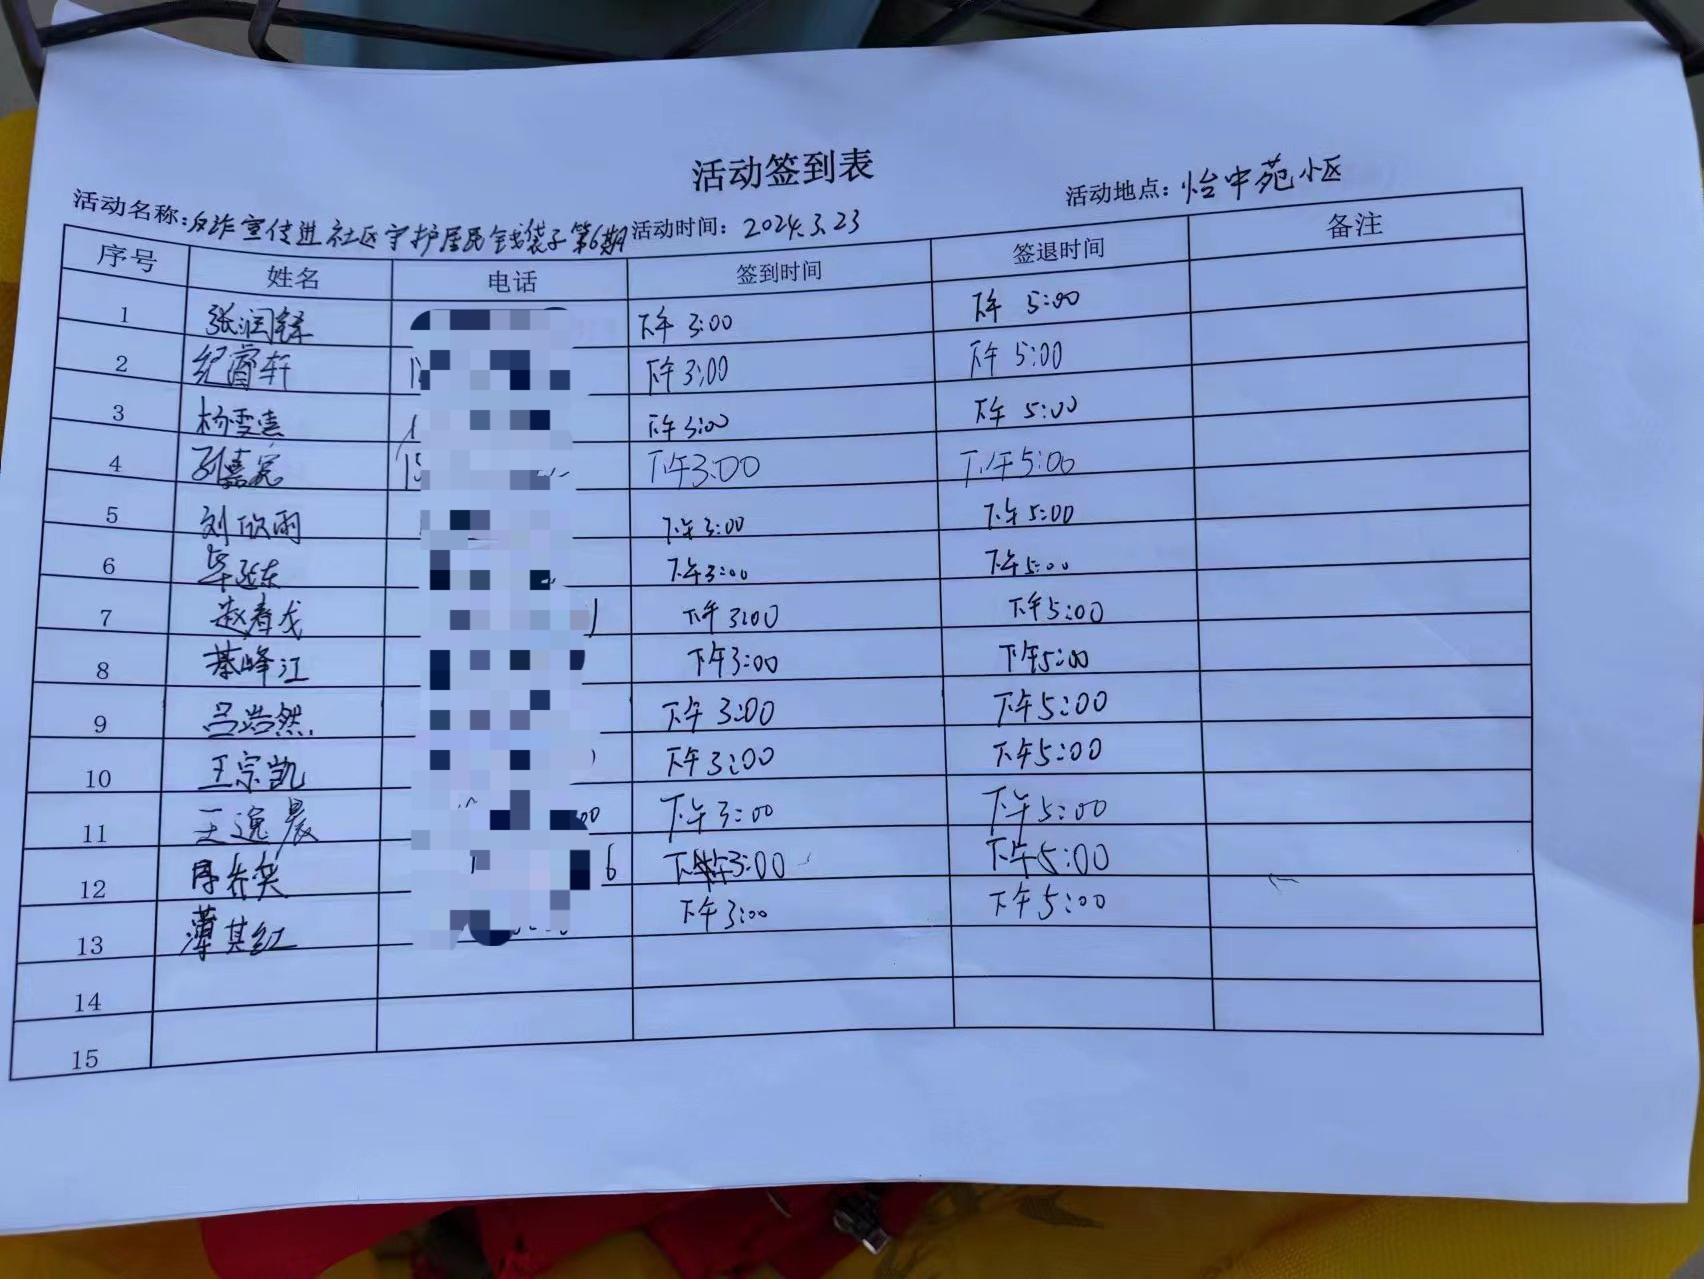 活动签到表
活动名称:反诈宣传进社区守护居民钱袋子第6期 活动时间: 2024.3.23 活动地点: 怡中苑小区
序号 姓名 电话 签到时间 签退时间 备注
1 张润铎 下午 3:00 下午 5:00
2 纪睿轩 下午 3:00 下午 5:00
3 杨雪 下午 3:00 下午 5:00
4 嘉宾 15 下午3:00 下午5:00
5 刘欣雨 下午3:00 下午5:00
6 毕延东 下午3:00 下午5:00
7 赵春 下午 3:00 下午5:00
8 綦峰江 下午3:00 下午5:00
9 吕浩然 下午 3:00 下午5:00
10 王宗凯 下午3:00 下午5:00
11 王逸晨 00 下午3:00 下午5:00
12 6 下午3:00 下午5:00
13 薄其红 下午3:00 下午5:00
14
15